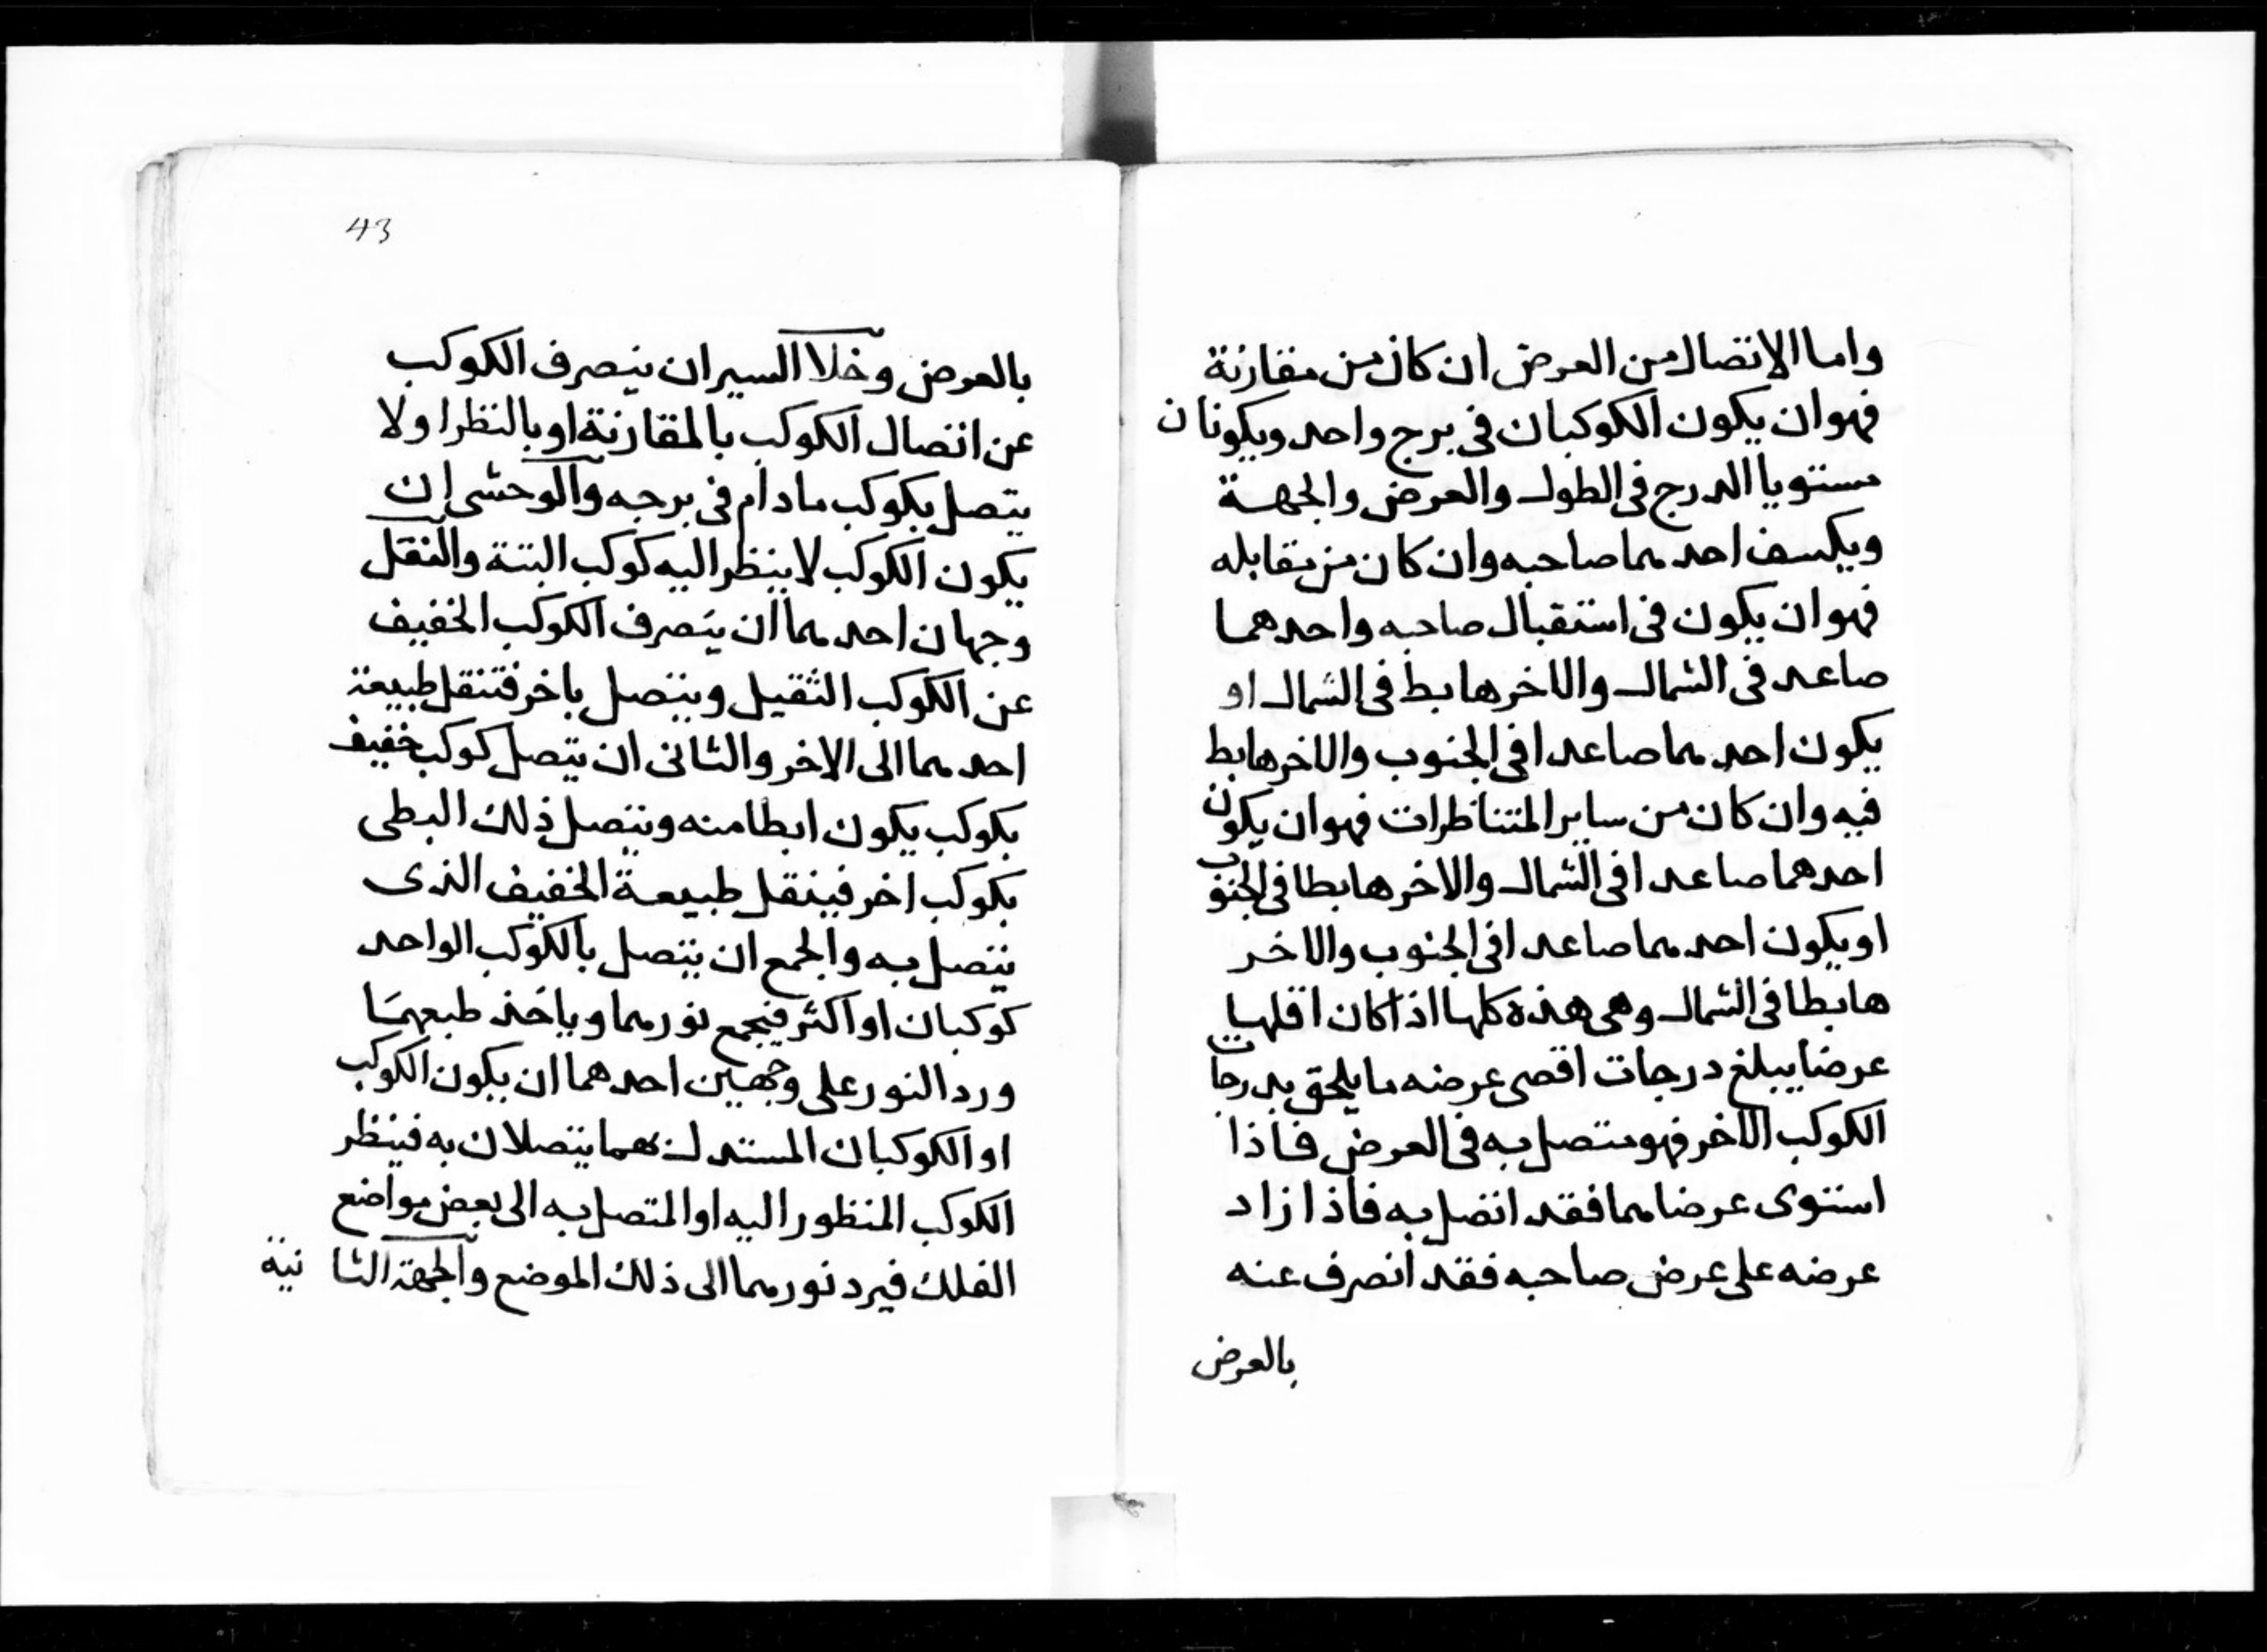 واما الاتصال من العرض ان كان من مقارنة
فهو ان يكون الكوكبان فى برج واحد ويكونان
مستويا الدرج فى الطول والعرض والجهة
ويكسف احدهما صاحبه وان كان من مقابله
فهو ان يكون فى استقبال صاحبه واحدهما
صاعد فى الشمال والاخر هابط فى الشمال او
يكون احدهما صاعدا فى الجنوب والاخر هابط
فيه وان كان من ساير المتناظرات فهو ان يكون
احدهما صاعدا فى الشمال والاخر هابطا فى الجنوب
او يكون احدهما صاعدا فى الجنوب والاخر
هابطا فى الشمال وهى هذه كلها اذا كان اقلهما
عرضا يبلغ درجات اقصى عرضه ما يلحق بدرجات
الكوكب الاخر فهو متصل به فى العرض فاذا
استوى عرضاهما فقد اتصل به فاذا زاد
عرضه على عرض صاحبه فقد انصرف عنه
بالعرض
43
بالعرض وخلاا السير ان ينصرف الكوكب
عن اتصال الكوكب بالمقارنة او بالنظر ا ولا
يتصل بكوكب مادام فى برجه والوحشى ان
يكون الكوكب لا ينظر اليه كوكب البتة والنقل
وجهان احدهما ان ينصرف الكوكب الخفيف
عن الكوكب الثقيل ويتصل باخر فتنقل طبيعة
احدهما الى الاخر والثانى ان يتصل كوكب خفيف
بكوكب يكون ابطا منه ويتصل ذلك البطى
بكوكب اخر فينقل طبيعة الخفيف الذى
يتصل به والجمع ان يتصل بالكوكب الواحد
كوكبان او اكثر فيجمع نورهما وياخذ طبعهما
ورد النور على وجهين احدهما ان يكون الكوكب
او الكوكبان هما يتصلان به فينظر
الكوكب المنظور اليه او المتصل به الى بعض مواضع
الفلك فيرد نورهما الى ذلك الموضع والجهة الثانية